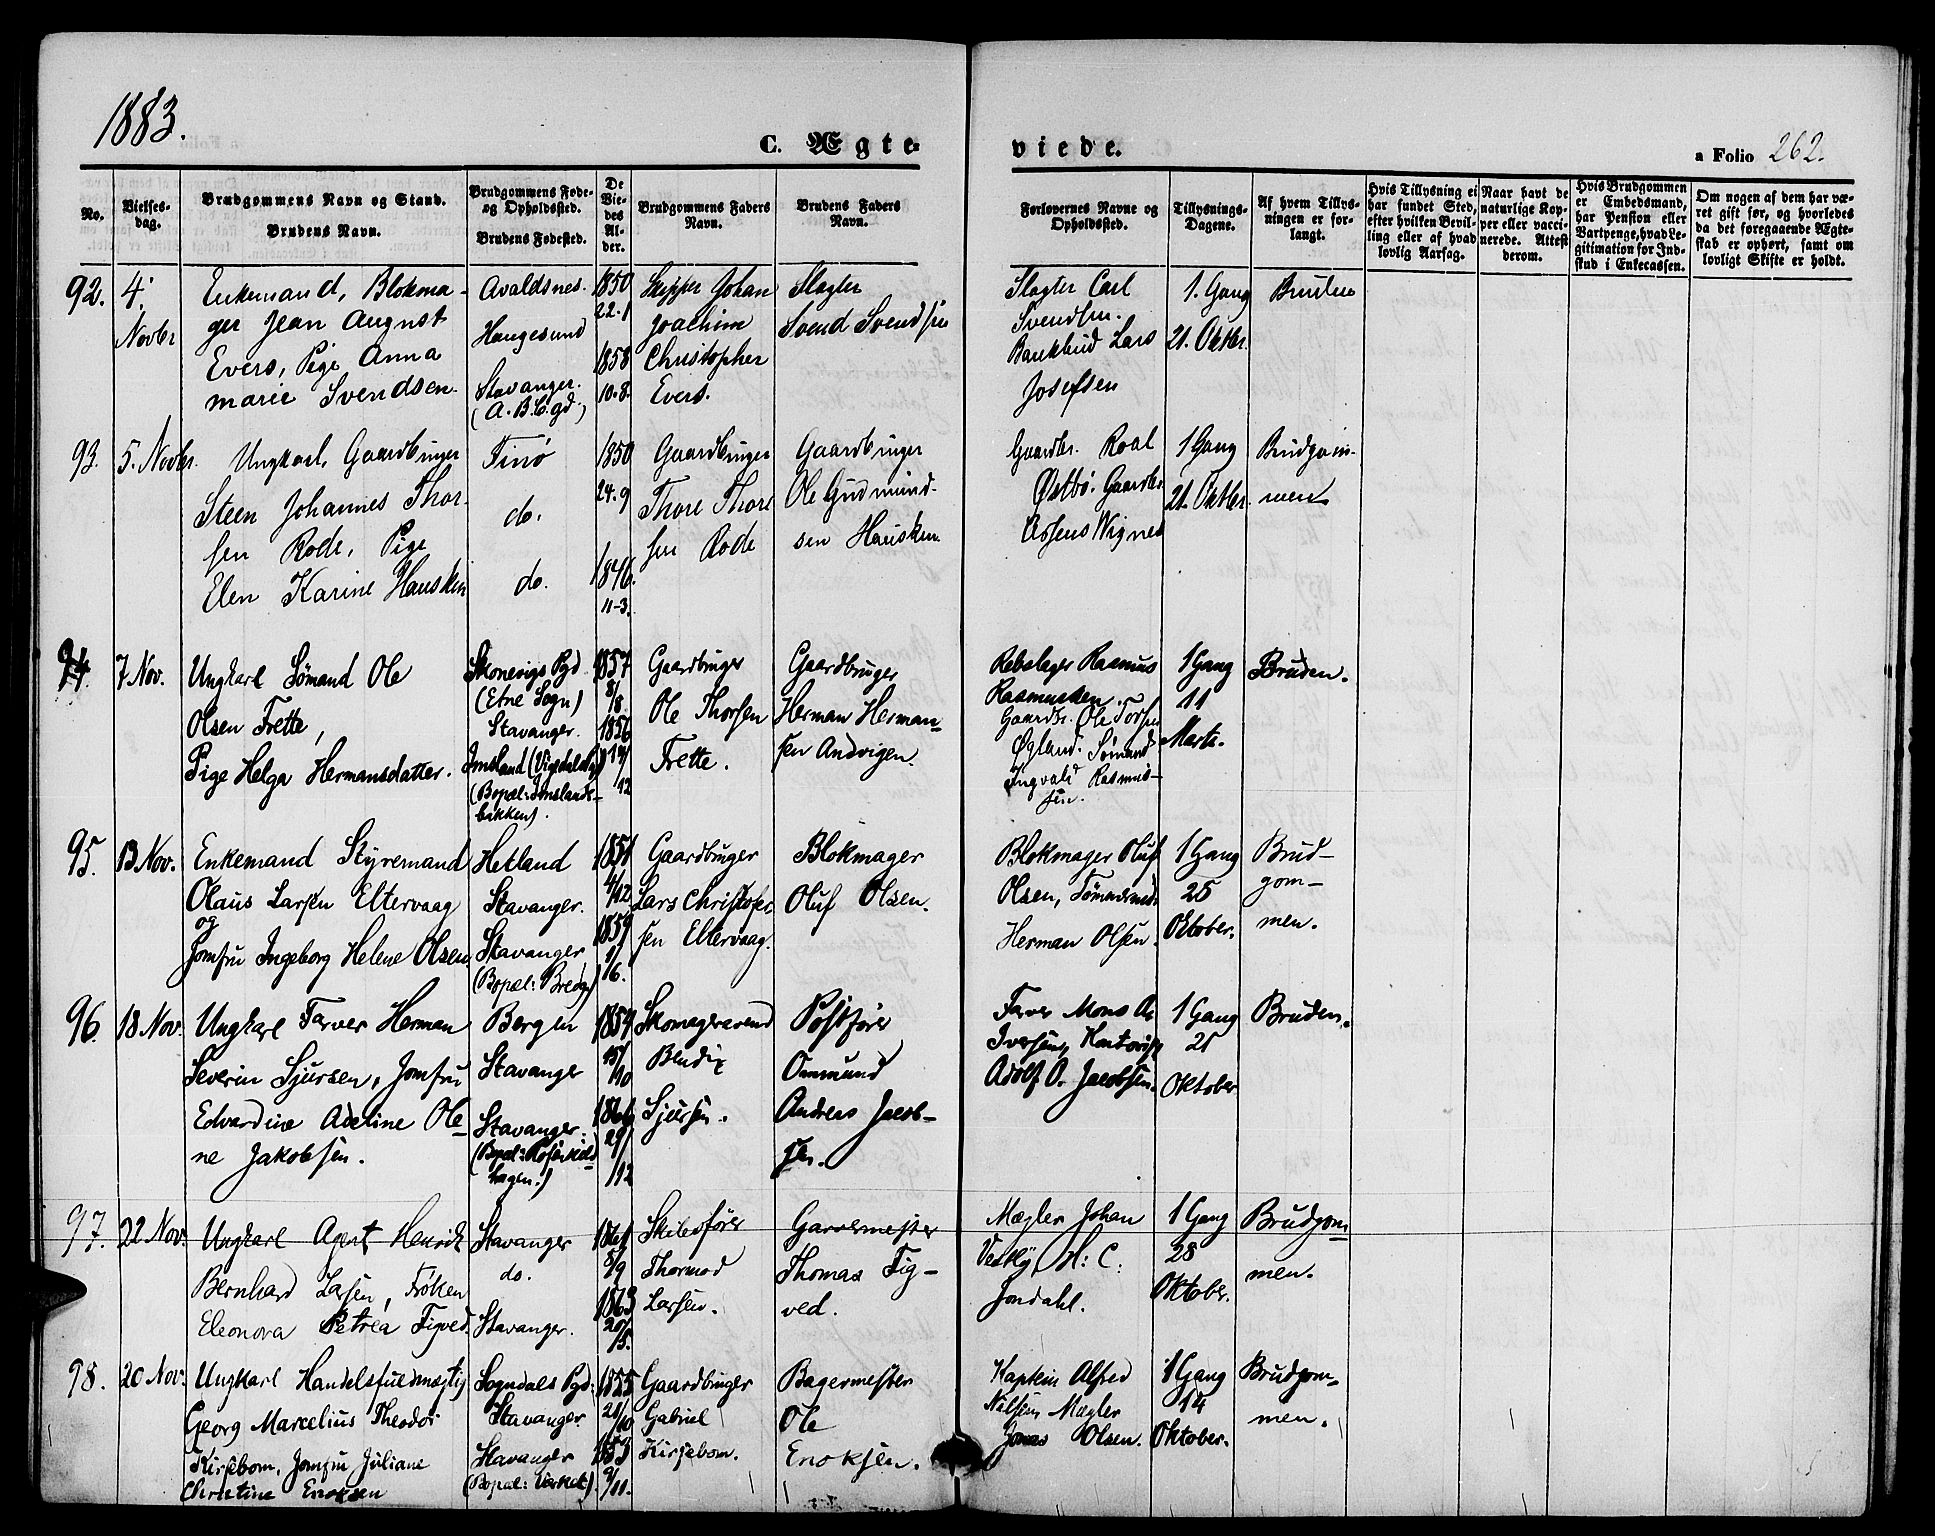 1883.
C. Ægte-
viede.
a Folio 262.
No.
Vielses-
dag.
Brudgommens Navn og Stand.
Brudens Navn.
Brudgommens Føde-
og Opholdssted.
Brudens Fødested.
De
Vie-
des
Al-
der.
Brudgommens Faders
Navn.
Brudens Faders
Navn.
Forlovernes Navne og
Opholdssted.
Tillysnings-
Dagene.
Af hvem Tillys-
ningen er for-
langt.
Hvis Tillysning ei
har fundet Sted,
efter hvilken Bevil-
ling eller af hvad
lovlig Aarsag.
Naar havt de
naturlige Kop-
per eller vacci-
nerede. Attest
derom.
Hvis Brudgommen
er Embedsmand,
har Pension eller
Vartpenge, hvad Le-
gitimation for Ind-
skud i Enkecassen.
Om nogen af dem har væ-
ret gift før, og hvorledes
da det foregaaende Ægte-
skab er ophørt, samt om
lovligt Skifte er holdt.
92.
4.
Novbr
Enkemand, Blokma-
ger Jean August
Evers, Pige Anna
marie Svendsen.
Avaldsnes.
Haugesund
Stavanger.
(A.B.C.gd)
1850
22.1
1858
10.8.
Skipper Johan
Joachim
Christopher
Evers.
Slagter
Svend Svendsen
Slagter Carl
Svendsen.
Bankbud Lars
Josefsen
1. Gang
21. Oktbr.
Bruden
93.
5. Novbr.
Ungkarl, Gaardbruger
Steen Johannes Thor-
sen Rode, Pige
Elen Karine Hausken
Finø
do.
do.
1850
24.9
1846.
11-3.
Gaardbruger
Thore Thore
sen Rode
Gaardbruger
Ole Gudmund-
sen Hausken.
Gaardbr. Roal
Østbø. Gaardbr.
Wignes
1 Gang
21. Oktbr.
Brudgom-
men
94.
7 Nov.
Ungkarl Sømand Ole
Olsen Frette,
Pige Helga Hermansdatter.
Skonevigs Pgd
(Etne Sogn)
Stavanger.
Imsland (Vigedals Pgd)
(Bopæl: Imslands-
bakken).
1857
8/8.
1856
19/
/12
Gaardbruger
Ole Thorsen
Frette.
Gaardbruger
Herman Herman-
sen Andvigen.
Rebslager Rasmus
Rasmussen.
Gaardbr. Ole Torsen
Øgland. Sømand
Ingvald Rasmus-
sen.
1 Gang
11
Marts.
Bruden.
95.
13 Nov.
Enkemand Styremand
Olaus Larsen Eltervaag
og
Jomfru Ingeborg Helene Olsen.
Hetland
Stavanger.
Stavanger
(Bopæl: Bredg)
1851
4/12
1859
1/
/6.
Gaardbruger
Lars Christofer
sen Eltervaag.
Blokmager
Oluf Olsen.
Blokmager Oluf
Olsen, Tømmermd.
Herman Olsen.
1 Gang
25
Oktober.
Brud-
gom-
men.
96.
18 Nov.
Ungkarl Farver Herman
Severin Sjursen, Jomfru
Edvardine Adeline Ole-
ne Jakobsen.
Bergen
Stavanger
Stavanger.
(Bopæl: Rosenkild-
hagen.)
1859
15/
/10
1866
29/
/12
Skomagersvend
Bendix
Sjursen.
Postfører
Ommund
Andreas Jacob-
sen.
Farver Mons A.
Iversen, Kontorist
Adolf O. Jacobsen.
1 Gang
21
Oktober
Bruden.
97.
22 Nov.
Ungkarl Agent Henrik
Bernhard Larsen, Frøken
Eleonora Petrea Figved.
Stavanger
do.
Stavanger.
1861
8/9
1863
20/5.
Skibsfører
Thormod
Larsen.
Garvermester
Thomas Fig-
ved.
Mægler Johan
H: C:
Jondahl.
1 Gang
28
Oktober.
Brudgom-
men.
98.
20 Nov.
Ungkarl Handelsfuldmægtig
Georg Marcelius Theodor
Kirsebom, Jomfru Juliane
Christine Enoksen
Sogndals Pgd.
Stavanger.
Stavanger
(Bopæl: Verket)
1855
21/10
1853
9/11.
Gaardbruger
Gabriel
Kirsebom.
Bagermester
Ole
Enoksen.
Kaptein Alfred
Nilsen Mægler
Jonas Olsen.
1 Gang
14
Oktober.
Brudgom-
men.